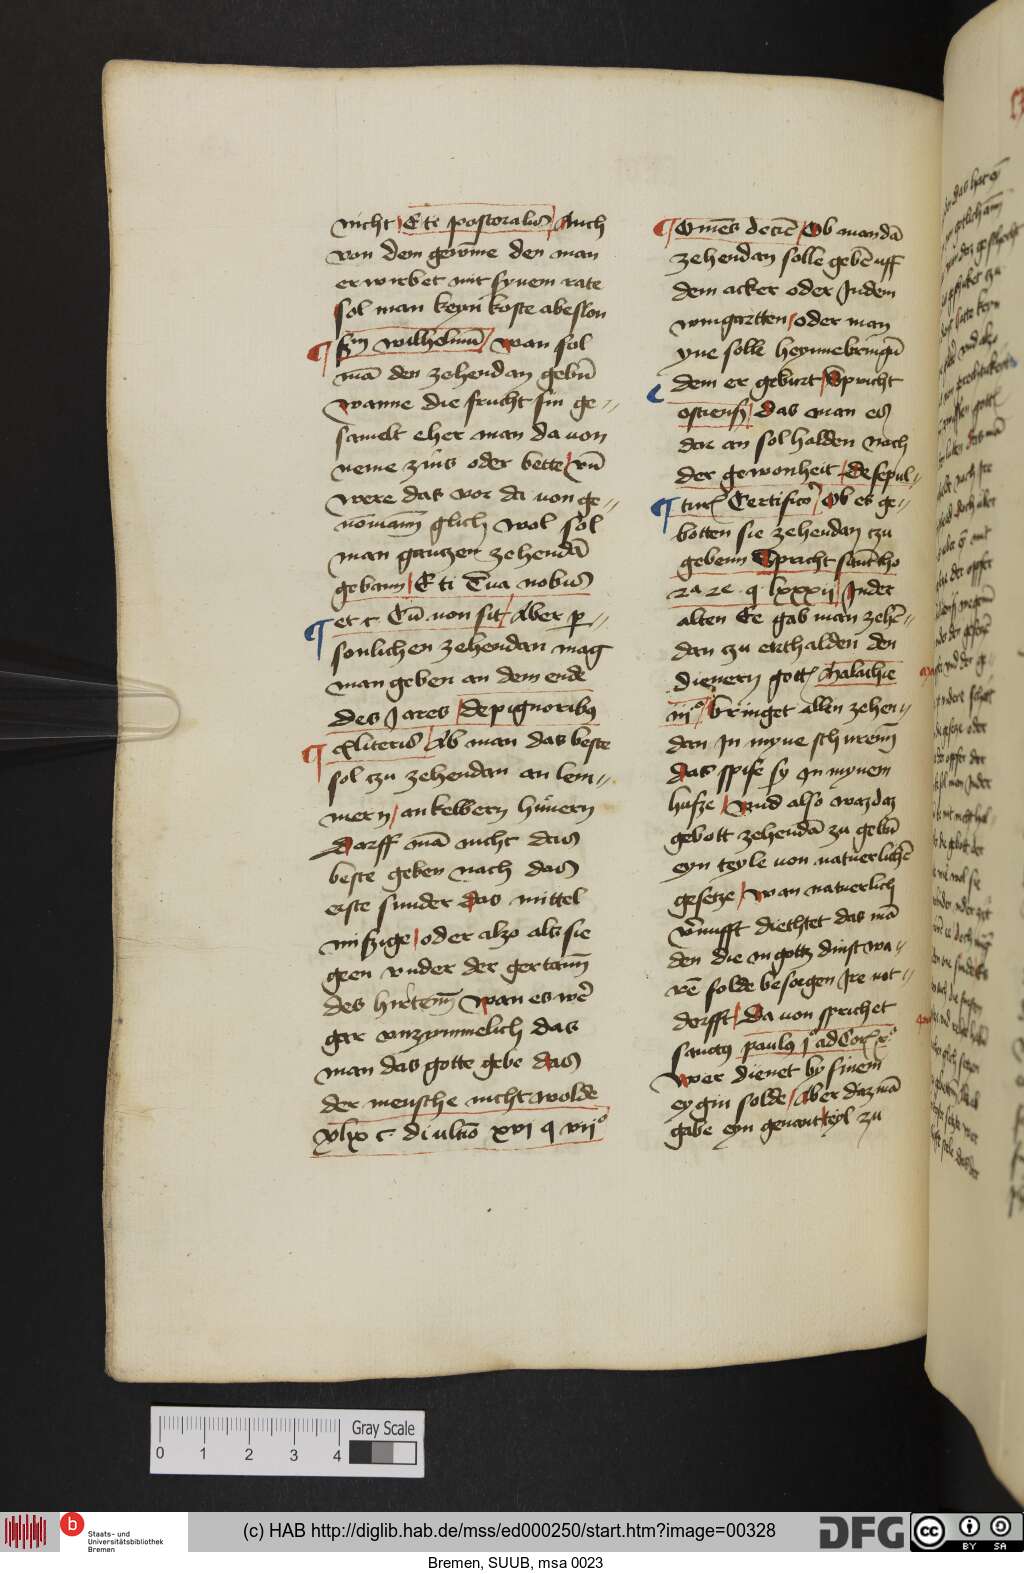 nicht / E ti pastoralis / Auch
von dem gewīne den man
erwirbet mit synem rate
sol man keyn koste abeslon
¶ Sm wilhelmū / wan sol
mā den zehendan gebñ
wanne die frucht sin ge=
samelt eher man da uon
neme zins oder bette / vñ
were das vor da uon ge=
nōmann glich wol sol
man gantzen zehendā
gebann / E ti Tua nobis
¶ et c Cū non sit / Aber p=
sonlichen zehendan mag
man geben an dem ende
des Jares / de pignoribus
¶ ex literis / Ab man das beste
sol czu zehendan an lem=
mern / an kelbern hünern
darff mā nicht das
beste geben nach das
erste sunder das mittel
miszige / oder alzo als sie
geen vnder der gertann
des hirtenn wan es wer
gar vnzymmelich das
man das gotte gebe das
der mensche nicht wolde
c di ultīo xvi q vii°
¶ Omēs decīe / Ob man dā
zehendan solle gebē uff
dem acker oder Jndem
wingartten / oder man
yne solle heynnebringñ
dem er geburt / Spricht
ostiensis / das man es
dar an sol halden noch
der gewonheit / de sepul=
¶ tur Certificari / Ob es ge=
botten sie zehendan czu
gebenn Spricht sant tho
2a 2e q lxxxvij / Jnder
alten Ee gab man zehē=
dan czu enthalden den
dienern gotts Malachie
iij° / bringet allen zehen=
dan Jn myne schurenn
das spise sy Jn mynem
husze / Vnd also waz daz
gebott zehendā zu gebñ
eyn teyle uon natuerlichē
gesetze / wan natuerlich
vernufft diethtet das mā
den die in gotts dinst wa=
rē solde besorgen Jre not=
dorfft / Da uon sprichet
sanctus paulus j° ad Cor
wer dienet by sinem
eygin solde / Aber daz mā
gabe eyn genant teyl zu
0 1 2 3 4
Gray Scale
Staats- und
Universitätsbibliothek
Bremen
(c) HAB http://diglib.hab.de/mss/ed000250/start.htm?image=00328
DFG
CC BY SA
Bremen, SUUB, msa 0023